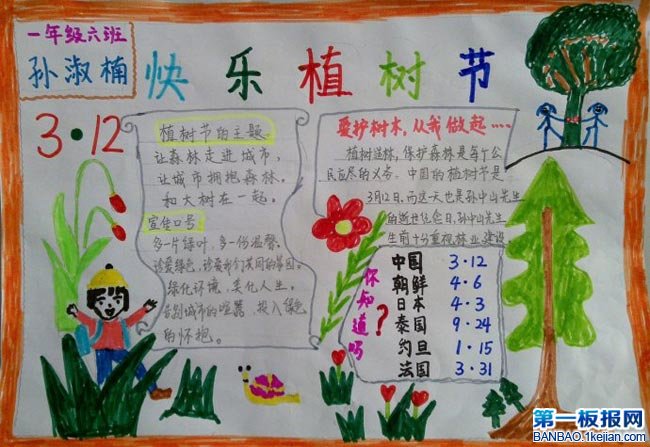 一年级六班
孙淑楠
快乐植树节
3·12
植树节的主题。
让森林走进城市,
让城市拥抱森林。
和大树在一起。
宣传口号。
多一片绿叶,多一份温馨。
珍爱绿色,珍爱我们共同的家园。
绿化环境,美化人生。
告别城市的喧嚣,投入绿色
的怀抱。
爱护树木,从我做起……
植树造林,保护森林是每个公
民应尽的义务。中国的植树节是
3月12日,而这天也是孙中山先生
的逝世纪念日,孙中山先生
生前十分重视林业建设。
你知道吗?
中国 3·12
朝鲜 4·6
日本 4·3
泰国 9·24
约旦 1·15
法国 3·31
第一板报网
BANBAO.1kejian.com